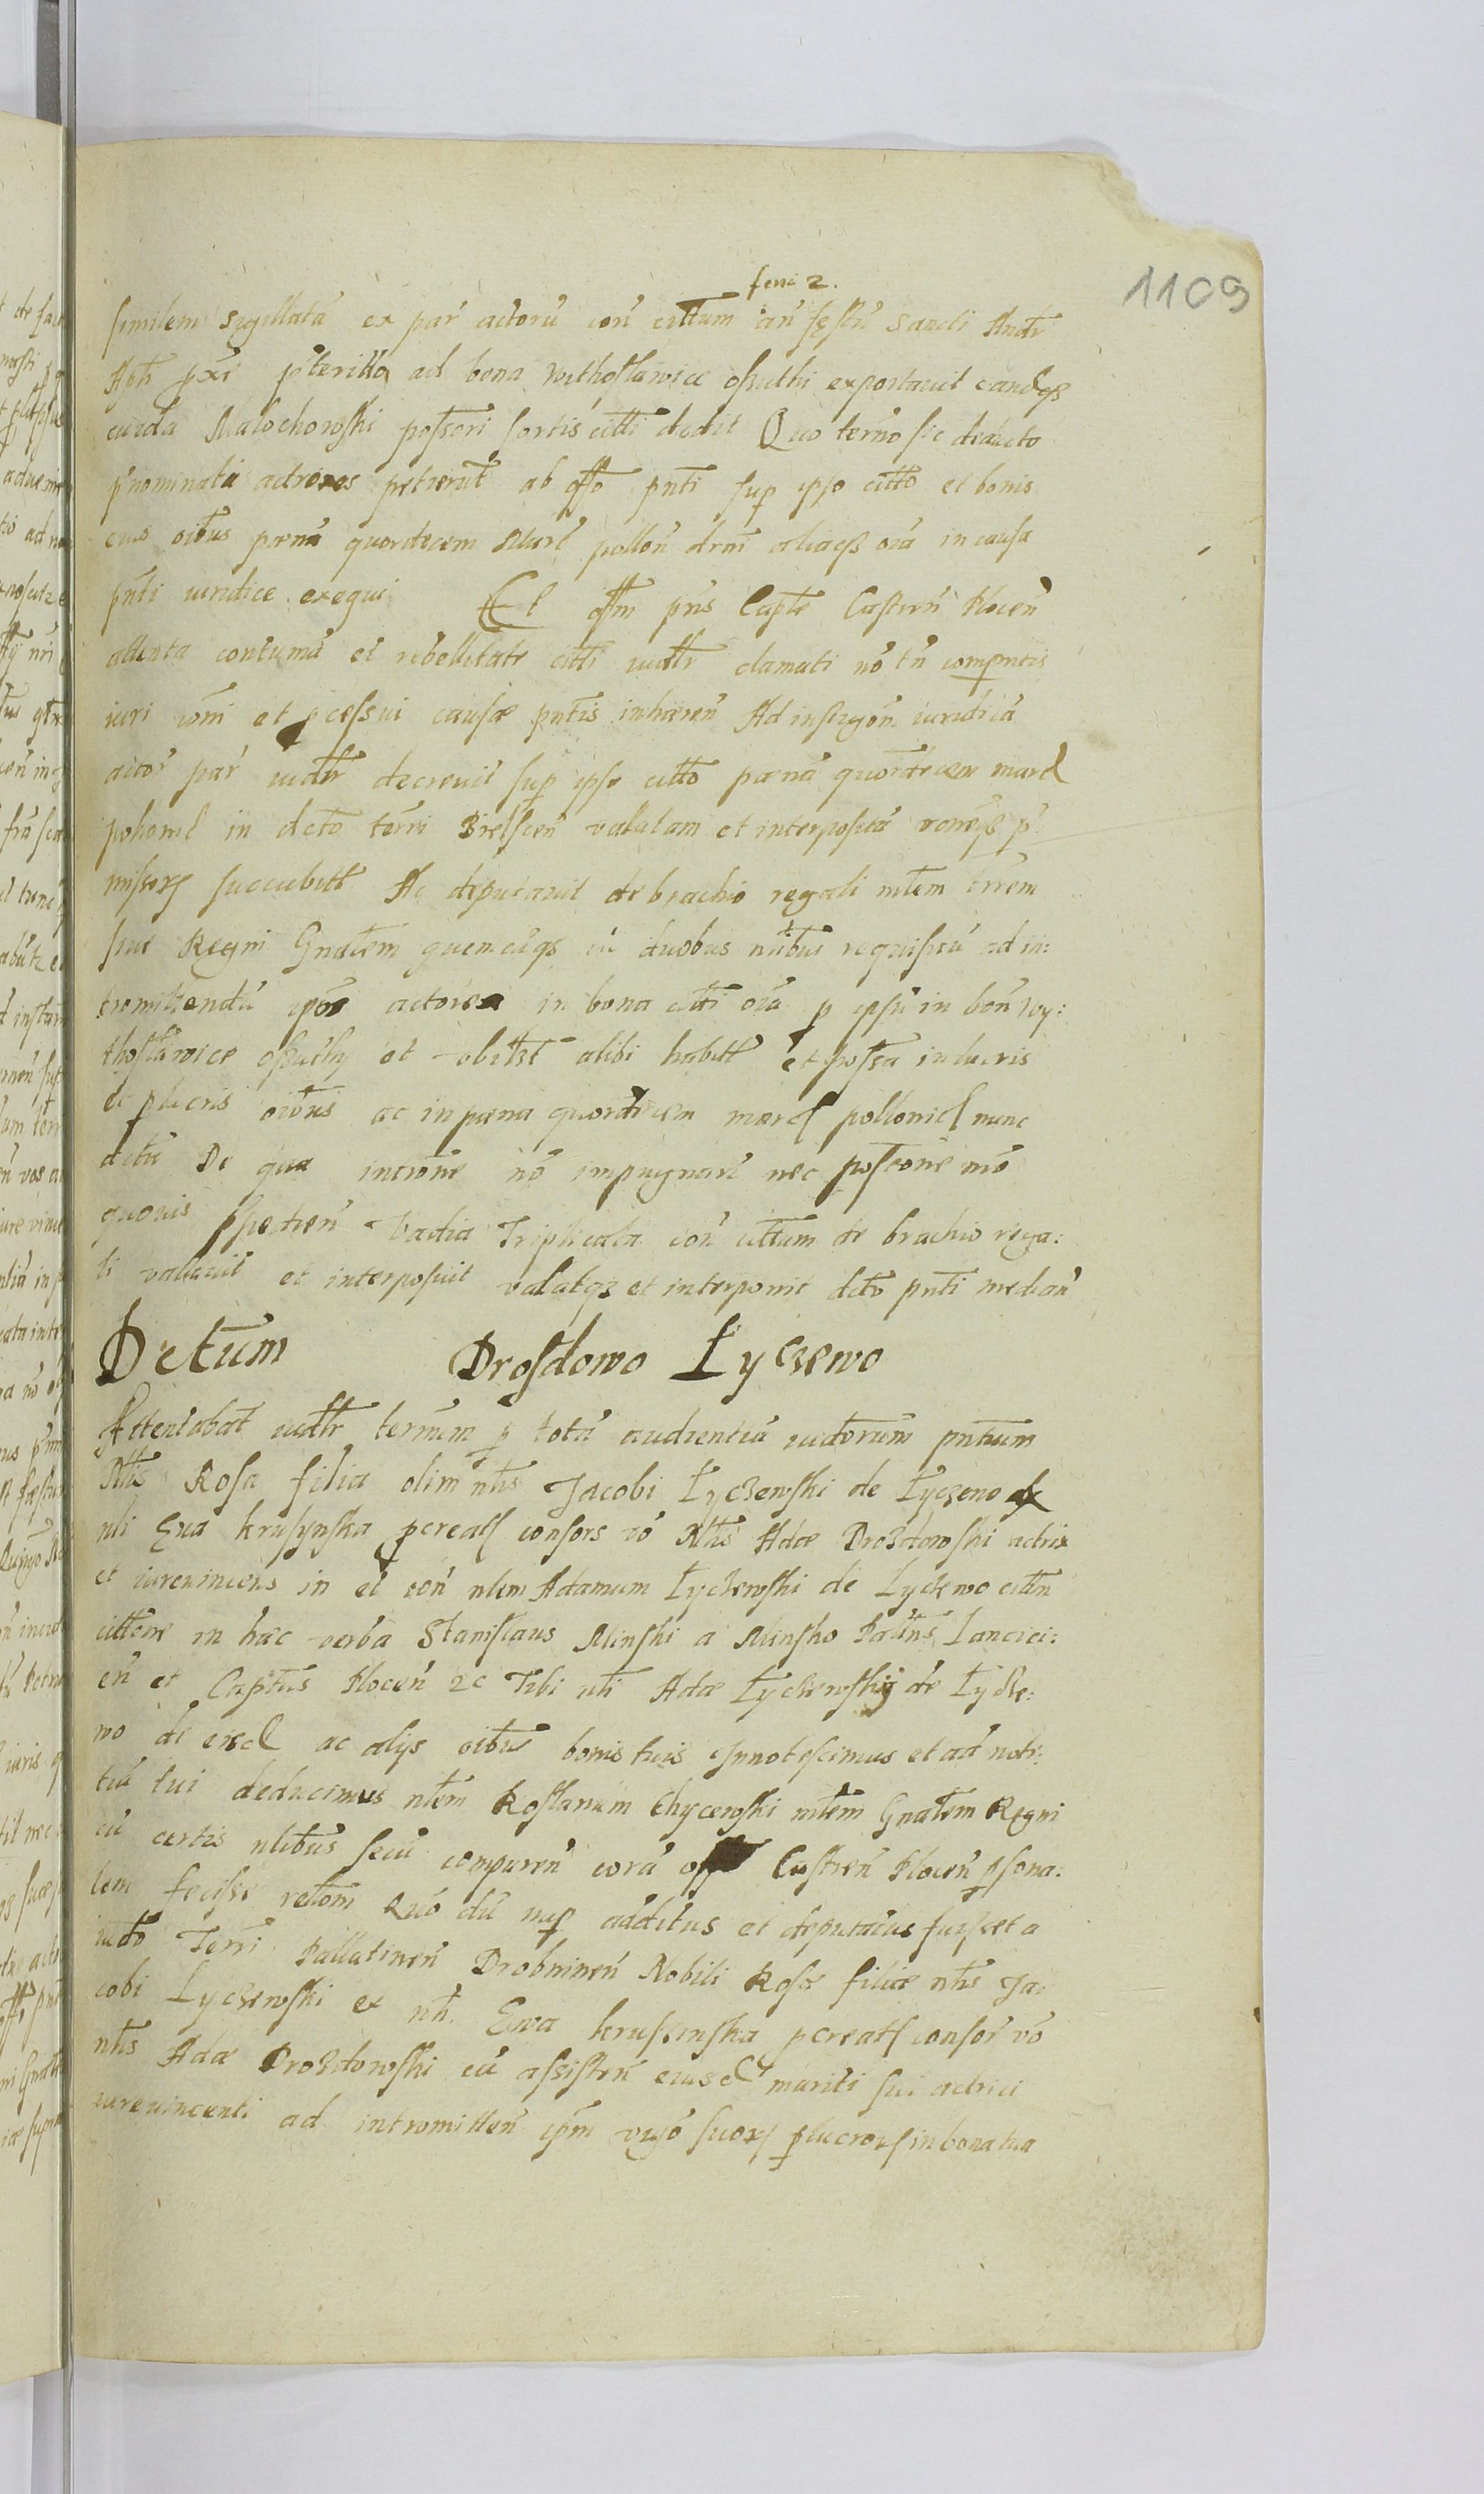 1109
feri 2.
similem sigillatã ex par actorũ con cittum an festũ Sancti Andr
Apti pxi pterit ad bona Withoslawice opathi exportavit eandqz
cuida Malochowski possori sortis citti dedit Quo termo sic deducto
pnominata actores petierut ab offo pnti sup ipso citto et bonis
eius oibus pæna quordecem Marc pollon drm aliaqz oia in causa
pnti iuridice exequi Et offm pns Capte Castren Plocen
attenta contuma et rebellitate citti iudtr clamati nō tn compntis
iuri coni et pcessui causæ pntis inhæren Ad instigōn iuridicā
actor par iudtr decrevit sup ipso citto pænā quordecem marc
polonicl in dcto terri Bielscen vallatam et interpositā p
missorz succubitt Ac deputavit de brachio regali mtem trrem
sive Regni Gnalem quemcūqz cū duobus nlibus requisitū ad in:
tromittendū ipos actores in bona citti oia p ipsū in bon Wy:
thoslawice opathy et ubilibt alibi habitt et possa in lucris
et plucris oibus ac in pæna quordecem marcl pollonicl nunc
dctū De qua introne nō impugnari nec postōne mō
quovis Vadia Triplicata con cittum de brachio rega:
li vallavit et interposuit valatqz et interponit dcto pnti median
Dctum Drosdowo Łyczewo
Attentabat iudtr termum p totā audientiā iudtorum pntium
Nlis Rosa filia olim nlis Jacobi Łyczewski de Łyczewo ex
nli Eva krusynska pcreats consors vō Nlis Adæ Drozdowski actrix
et iurevincens in et con nlem Adamum Łyczewski de Łyczewo cittn
cittōne in hæc verba Stanislaus Minski a Minsko Palns Lancici:
en et Captus Plocen 2c Tibi nli Adæ Łyczewskij de Łycze:
wo de eiscl ac alijs oibus bonis tuis Innotescimus et ad noti:
tiā tui deducimus nlem Roslanum Chycewski mtem Gnalem Regni
cū certis nlibus secū comparen corā off Castren Plocen psona:
lem fecisse relom Quō dū nup additus et deputatus fuisset a
iudō Terri Pallatinen Drobninen Nobili Rosæ filiæ nlis Ja:
cobi Łyczewski ex nli Ewa krusinska pcreats consor vō
nlis Adæ Drozdowski cū assisten eiuscl mariti sui actrici
iurevincenti ad intromitten ipm vigō suorz plucrorz in bona tua